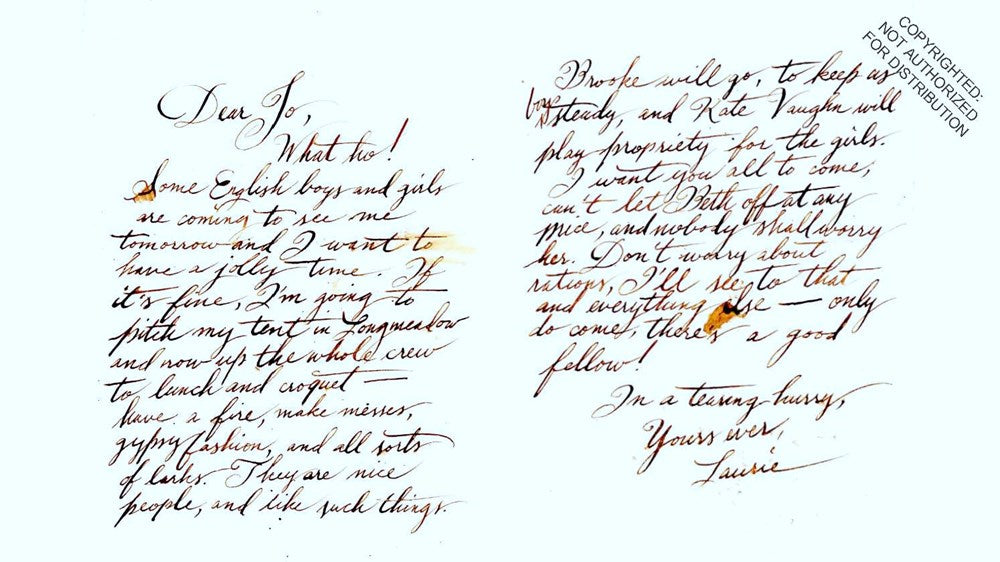 Dear Jo,
What ho!
Some English boys and girls
are coming to see me
tomorrow and I want to
have a jolly time. If
it's fine, I'm going to
pitch my tent in Longmeadow
and row up the whole crew
to lunch and croquet —
have a fire, make messes,
gypsy fashion, and all sorts
of larks. They are nice
people, and like such things.
Brooke will go, to keep us
boys steady, and Kate Vaughn will
play propriety for the girls.
I want you all to come,
can't let Beth off at any
price, and nobody shall worry
her. Don't worry about
rations, I'll see to that
and everything else — only
do come, there's a good
fellow!
In a tearing hurry,
Yours ever,
Laurie
COPYRIGHTED:
NOT AUTHORIZED
FOR DISTRIBUTION